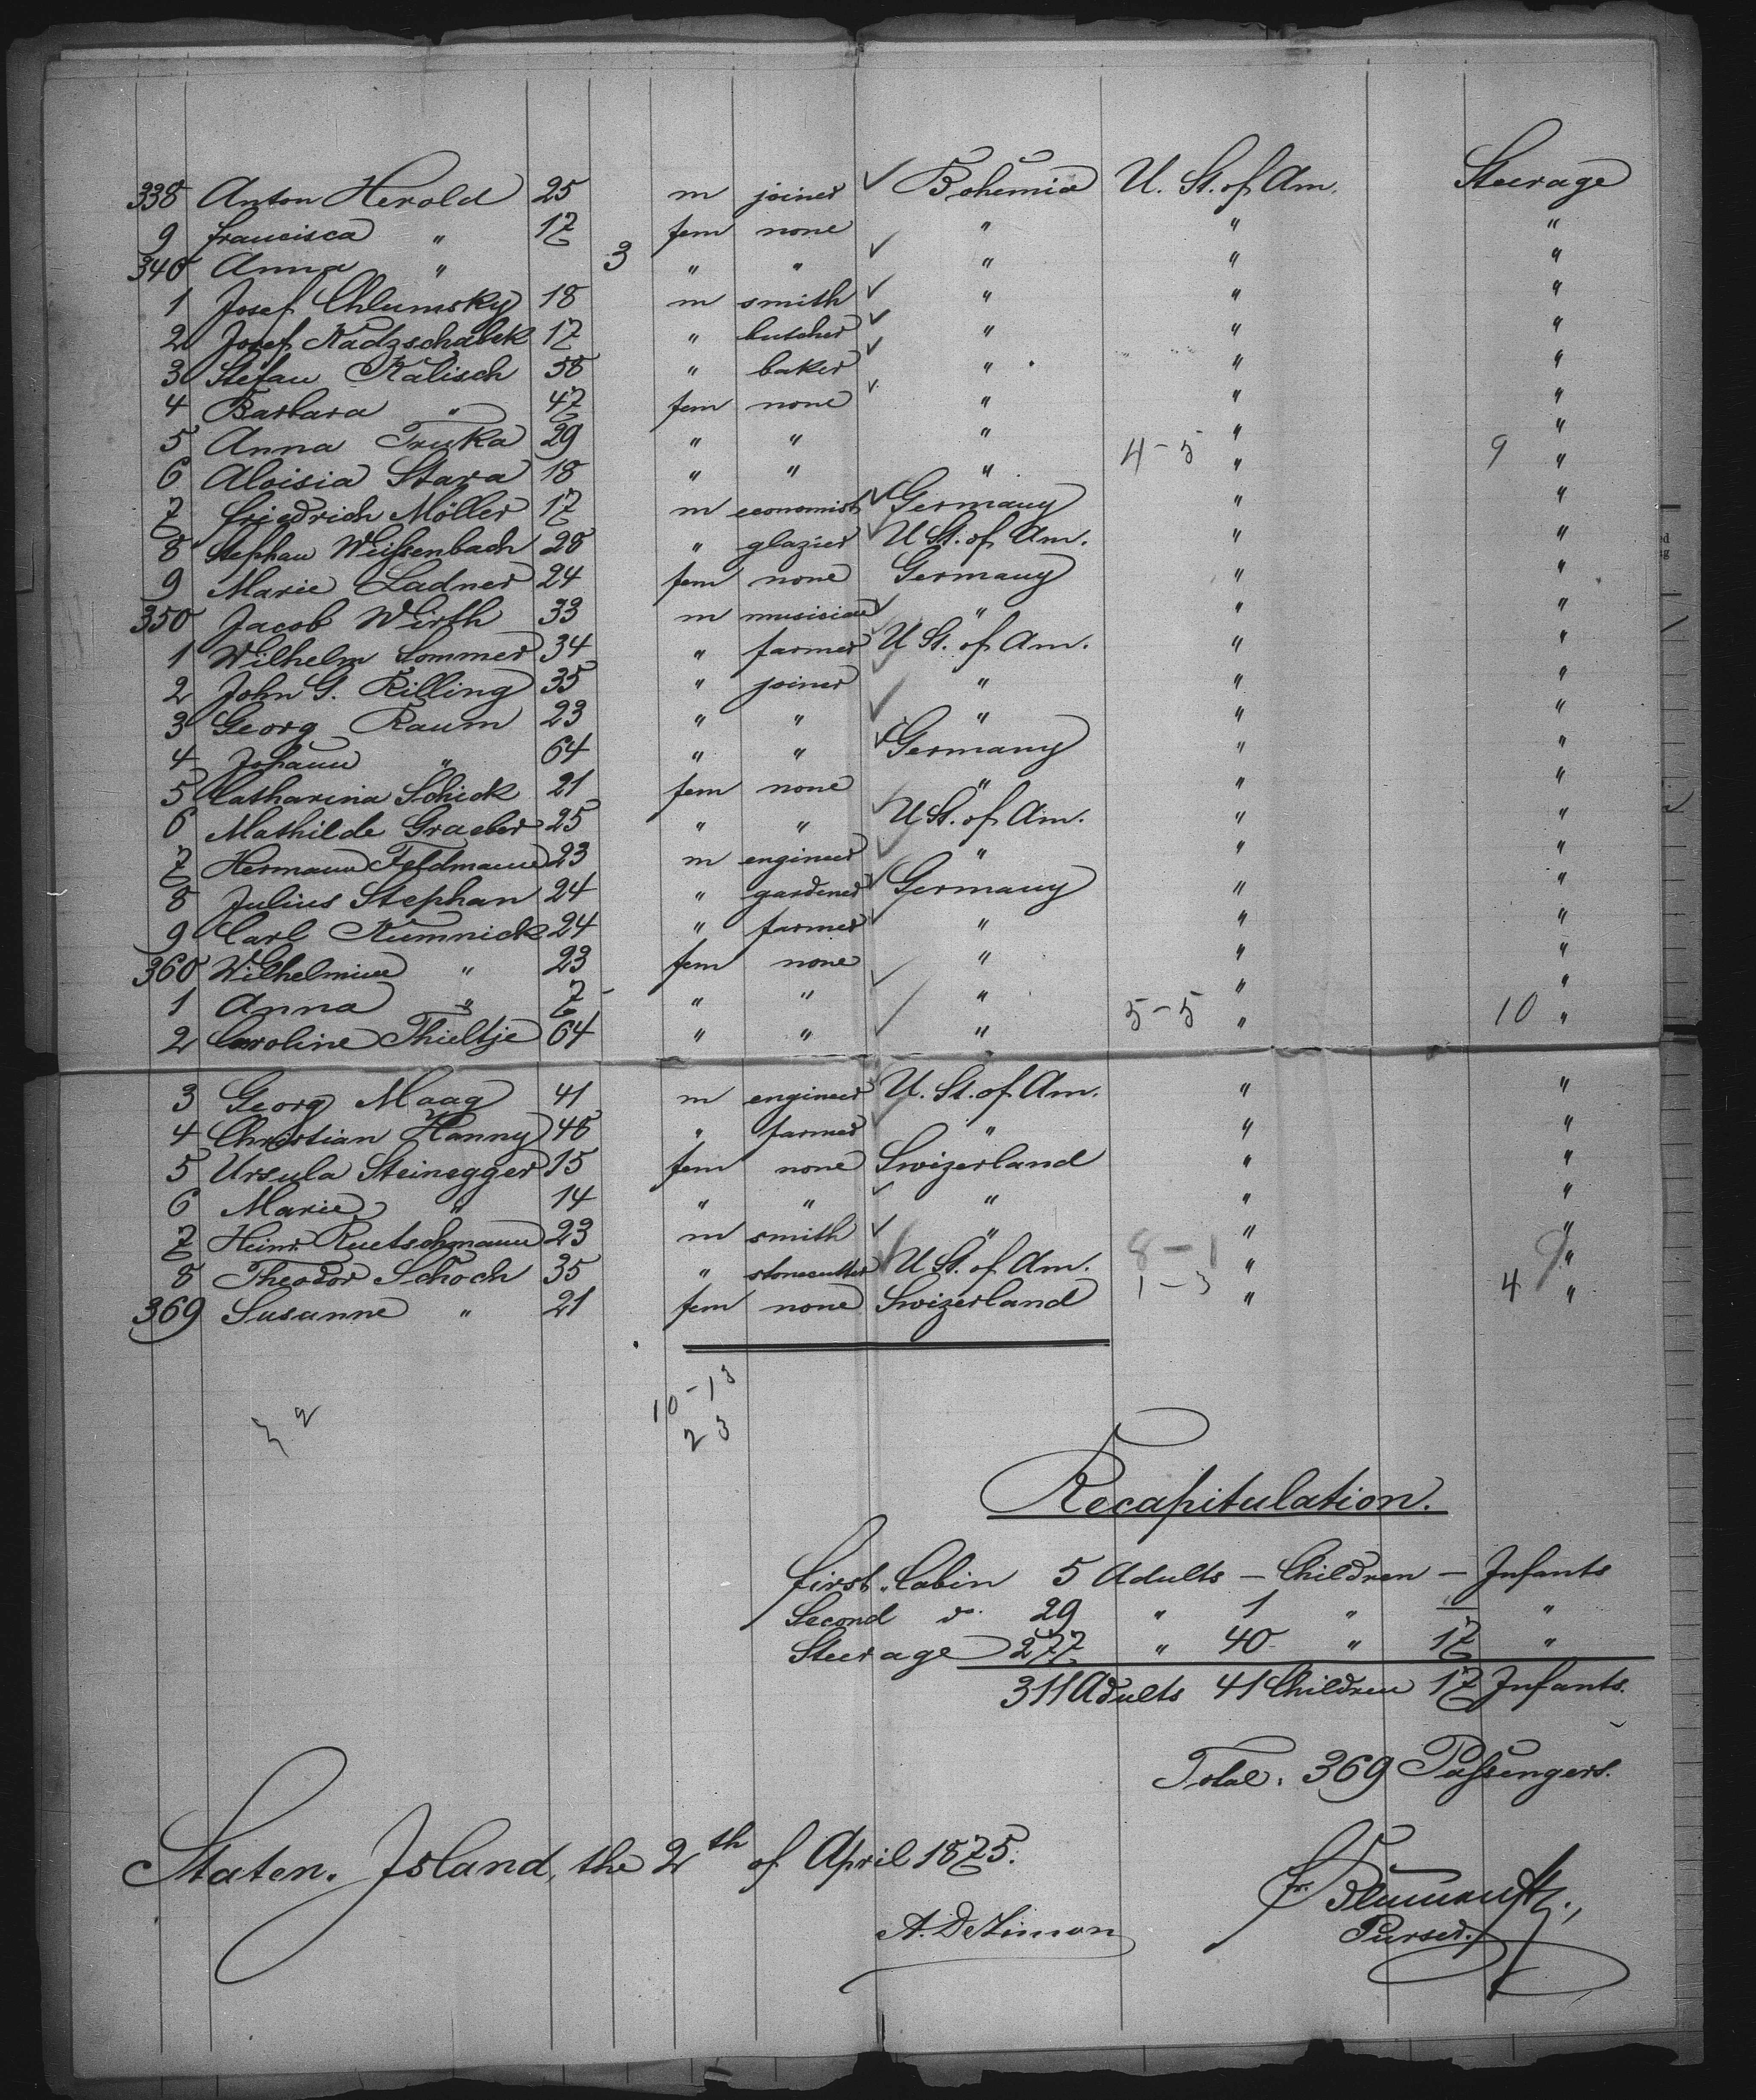 338 Anton Herold 25 m joiner Bohemia U. St. of Am. Steerage
9 Francisca " 17 fem none " " "
340 Anna " 3 " " " " "
1 Josef Chlumsky 18 m smith " " "
2 Josef Kadzschabek 17 " butcher " " "
3 Stefan Kalisch 58 " baker " " "
4 Barbara " 47 fem none " " "
5 Anna Truka 29 " " " " "
6 Aloisia Stara 18 " " " 4-5 " 9 "
7 Friedrich Möller 17 m economist Germany " "
8 Stephan Weissenbach 28 " glazier U St. of Am. " "
9 Marie Ladner 24 fem none Germany " "
350 Jacob Wirth 33 m musician " " "
1 Wilhelm Sommer 34 " farmer U St. of Am. " "
2 John G. Rilling 35 " joiner " " "
3 Georg Raum 23 " " " " "
4 Johann " 64 " " Germany " "
5 Catharina Schick 21 fem none " " "
6 Mathilde Graeber 25 " " U St. of Am. " "
7 Hermann Feldmann 23 m engineer " " "
8 Julius Stephan 24 " gardener Germany " "
9 Carl Kumnick 24 " farmer " " "
360 Wilhelmine " 23 fem none " " "
1 Anna " 7 " " " " "
2 Caroline Thieltje 64 " " " 5-5 " 10 "
3 Georg Maag 41 m engineer U. St. of Am. " "
4 Christian Hanny 48 " farmer " " "
5 Ursula Steinegger 15 fem none Swizerland " "
6 Marie " 14 " " " " "
7 Heinr. Ruetschmann 23 m smith " " "
8 Theodor Schoch 35 " stonecutter U St. of Am. 8-1 " 9 "
369 Susanne " 21 fem none Swizerland 1-3 " 4 "
10-13
23
Recapitulation.
First. Cabin 5 Adults — Children — Infants
Second do. 29 " 1 " — "
Steerage 277 " 40 " 17 "
311 Adults 41 Children 17 Infants.
Total. 369 Passengers.
Staten. Island, the 2th of April 1875.
A. DeLimon
Purser.